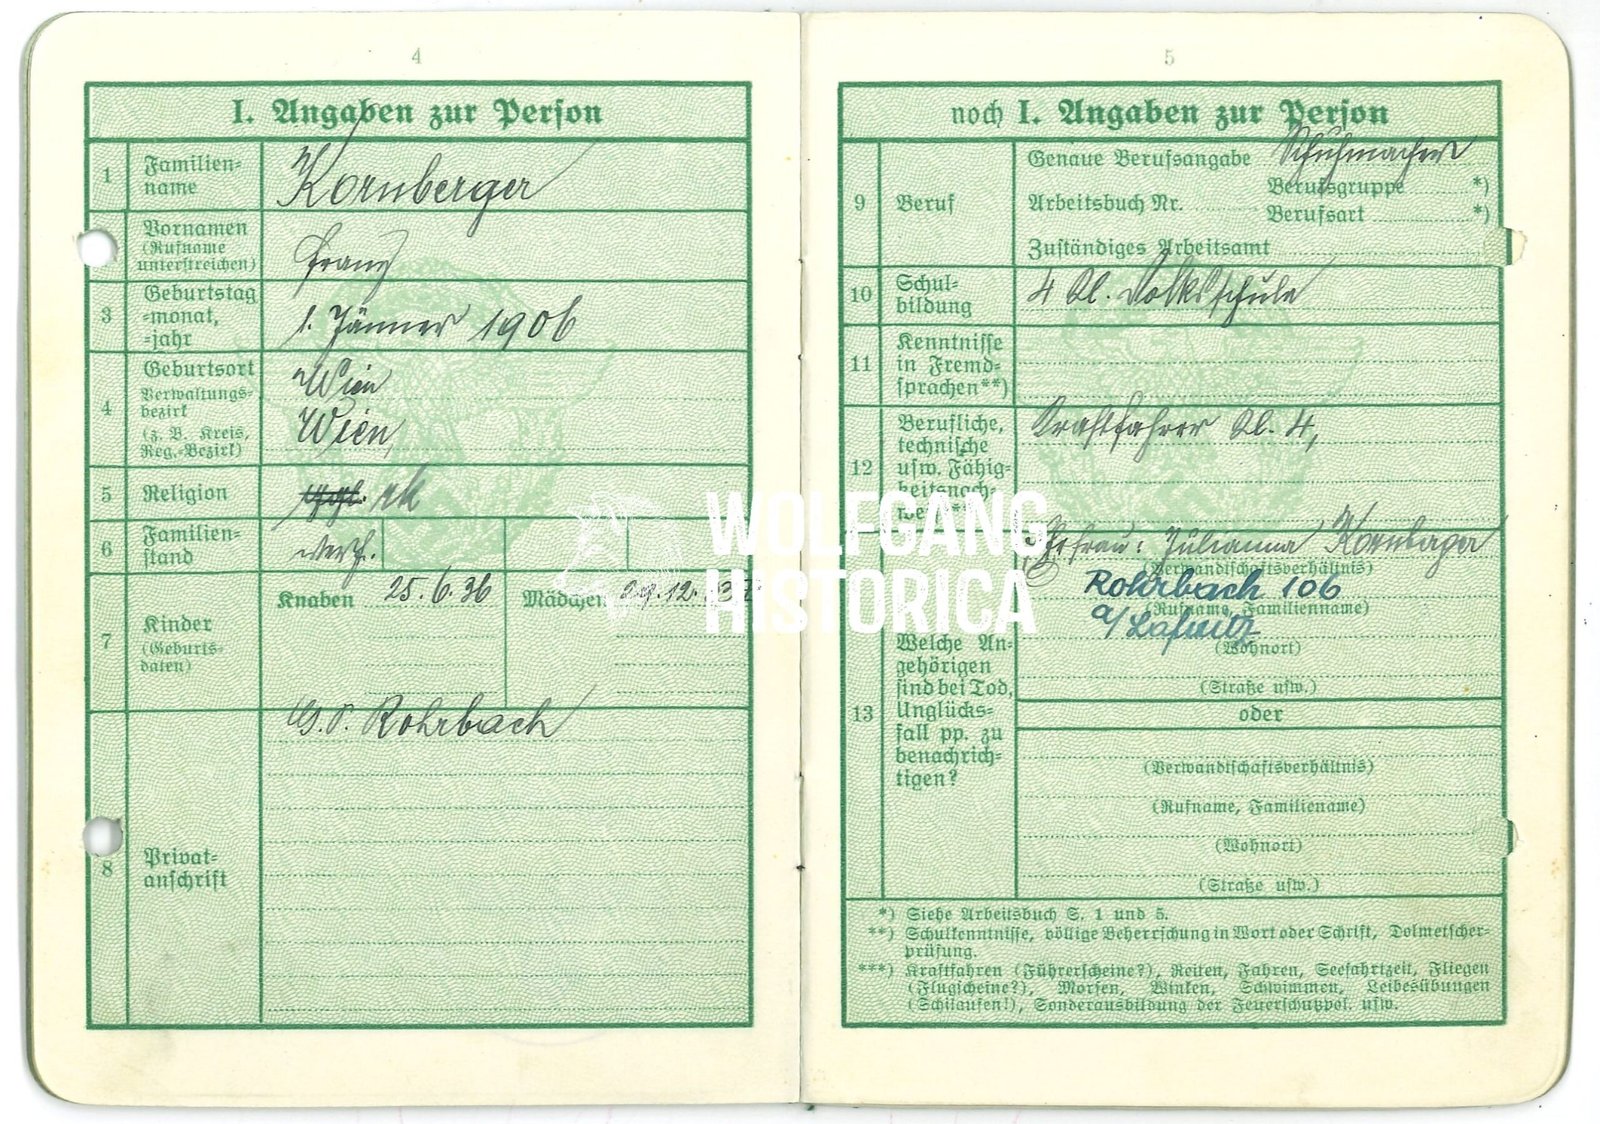 4
I. Angaben zur Person
1 Familien-
name
Kornberger
Vornamen
(Rufname
unterstreichen)
Franz
3 Geburtstag
-monat,
-jahr
1. Jänner 1906
4 Geburtsort
Verwaltungs-
bezirk
(z. B. Kreis,
Reg.-Bezirk)
Wien
Wien
5 Religion
rk
6 Familien-
stand
verh.
7 Kinder
(Geburts-
daten)
Knaben 25.6.36 Mädchen 29.12.
8 Privat-
anschrift
G.P. Rohrbach
5
noch I. Angaben zur Person
9 Beruf
Genaue Berufsangabe Schuhmacher
Berufsgruppe *)
Arbeitsbuch Nr.
Berufsart *)
Zuständiges Arbeitsamt
10 Schul-
bildung
4 Kl. Volksschule
11 Kenntnisse
in Fremd-
sprachen**)
12 Berufliche,
technische
usw. Fähig-
keitsnach-
Kraftfahrer Kl. 4,
13 Welche An-
gehörigen
sind bei Tod,
Unglücks-
fall pp. zu
benachrich-
tigen?
Ehefrau: Julianna Kornberger
(Verwandtschaftsverhältnis)
Rohrbach 106
(Rufname, Familienname)
a/Lafnitz
(Wohnort)
(Straße usw.)
oder
(Verwandtschaftsverhältnis)
(Rufname, Familiename)
(Wohnort)
(Straße usw.)
*) Siehe Arbeitsbuch S. 1 und 5.
**) Schulkenntnisse, völlige Beherrschung in Wort oder Schrift, Dolmetscher-
prüfung.
***) Kraftfahren (Führerscheine?), Reiten, Fahren, Seefahrtzeit, Fliegen
(Flugscheine?), Morsen, Winken, Schwimmen, Leibesübungen
(Schilaufen!), Sonderausbildung der Feuerschutzpol. usw.
WOLFGANG
HISTORICA